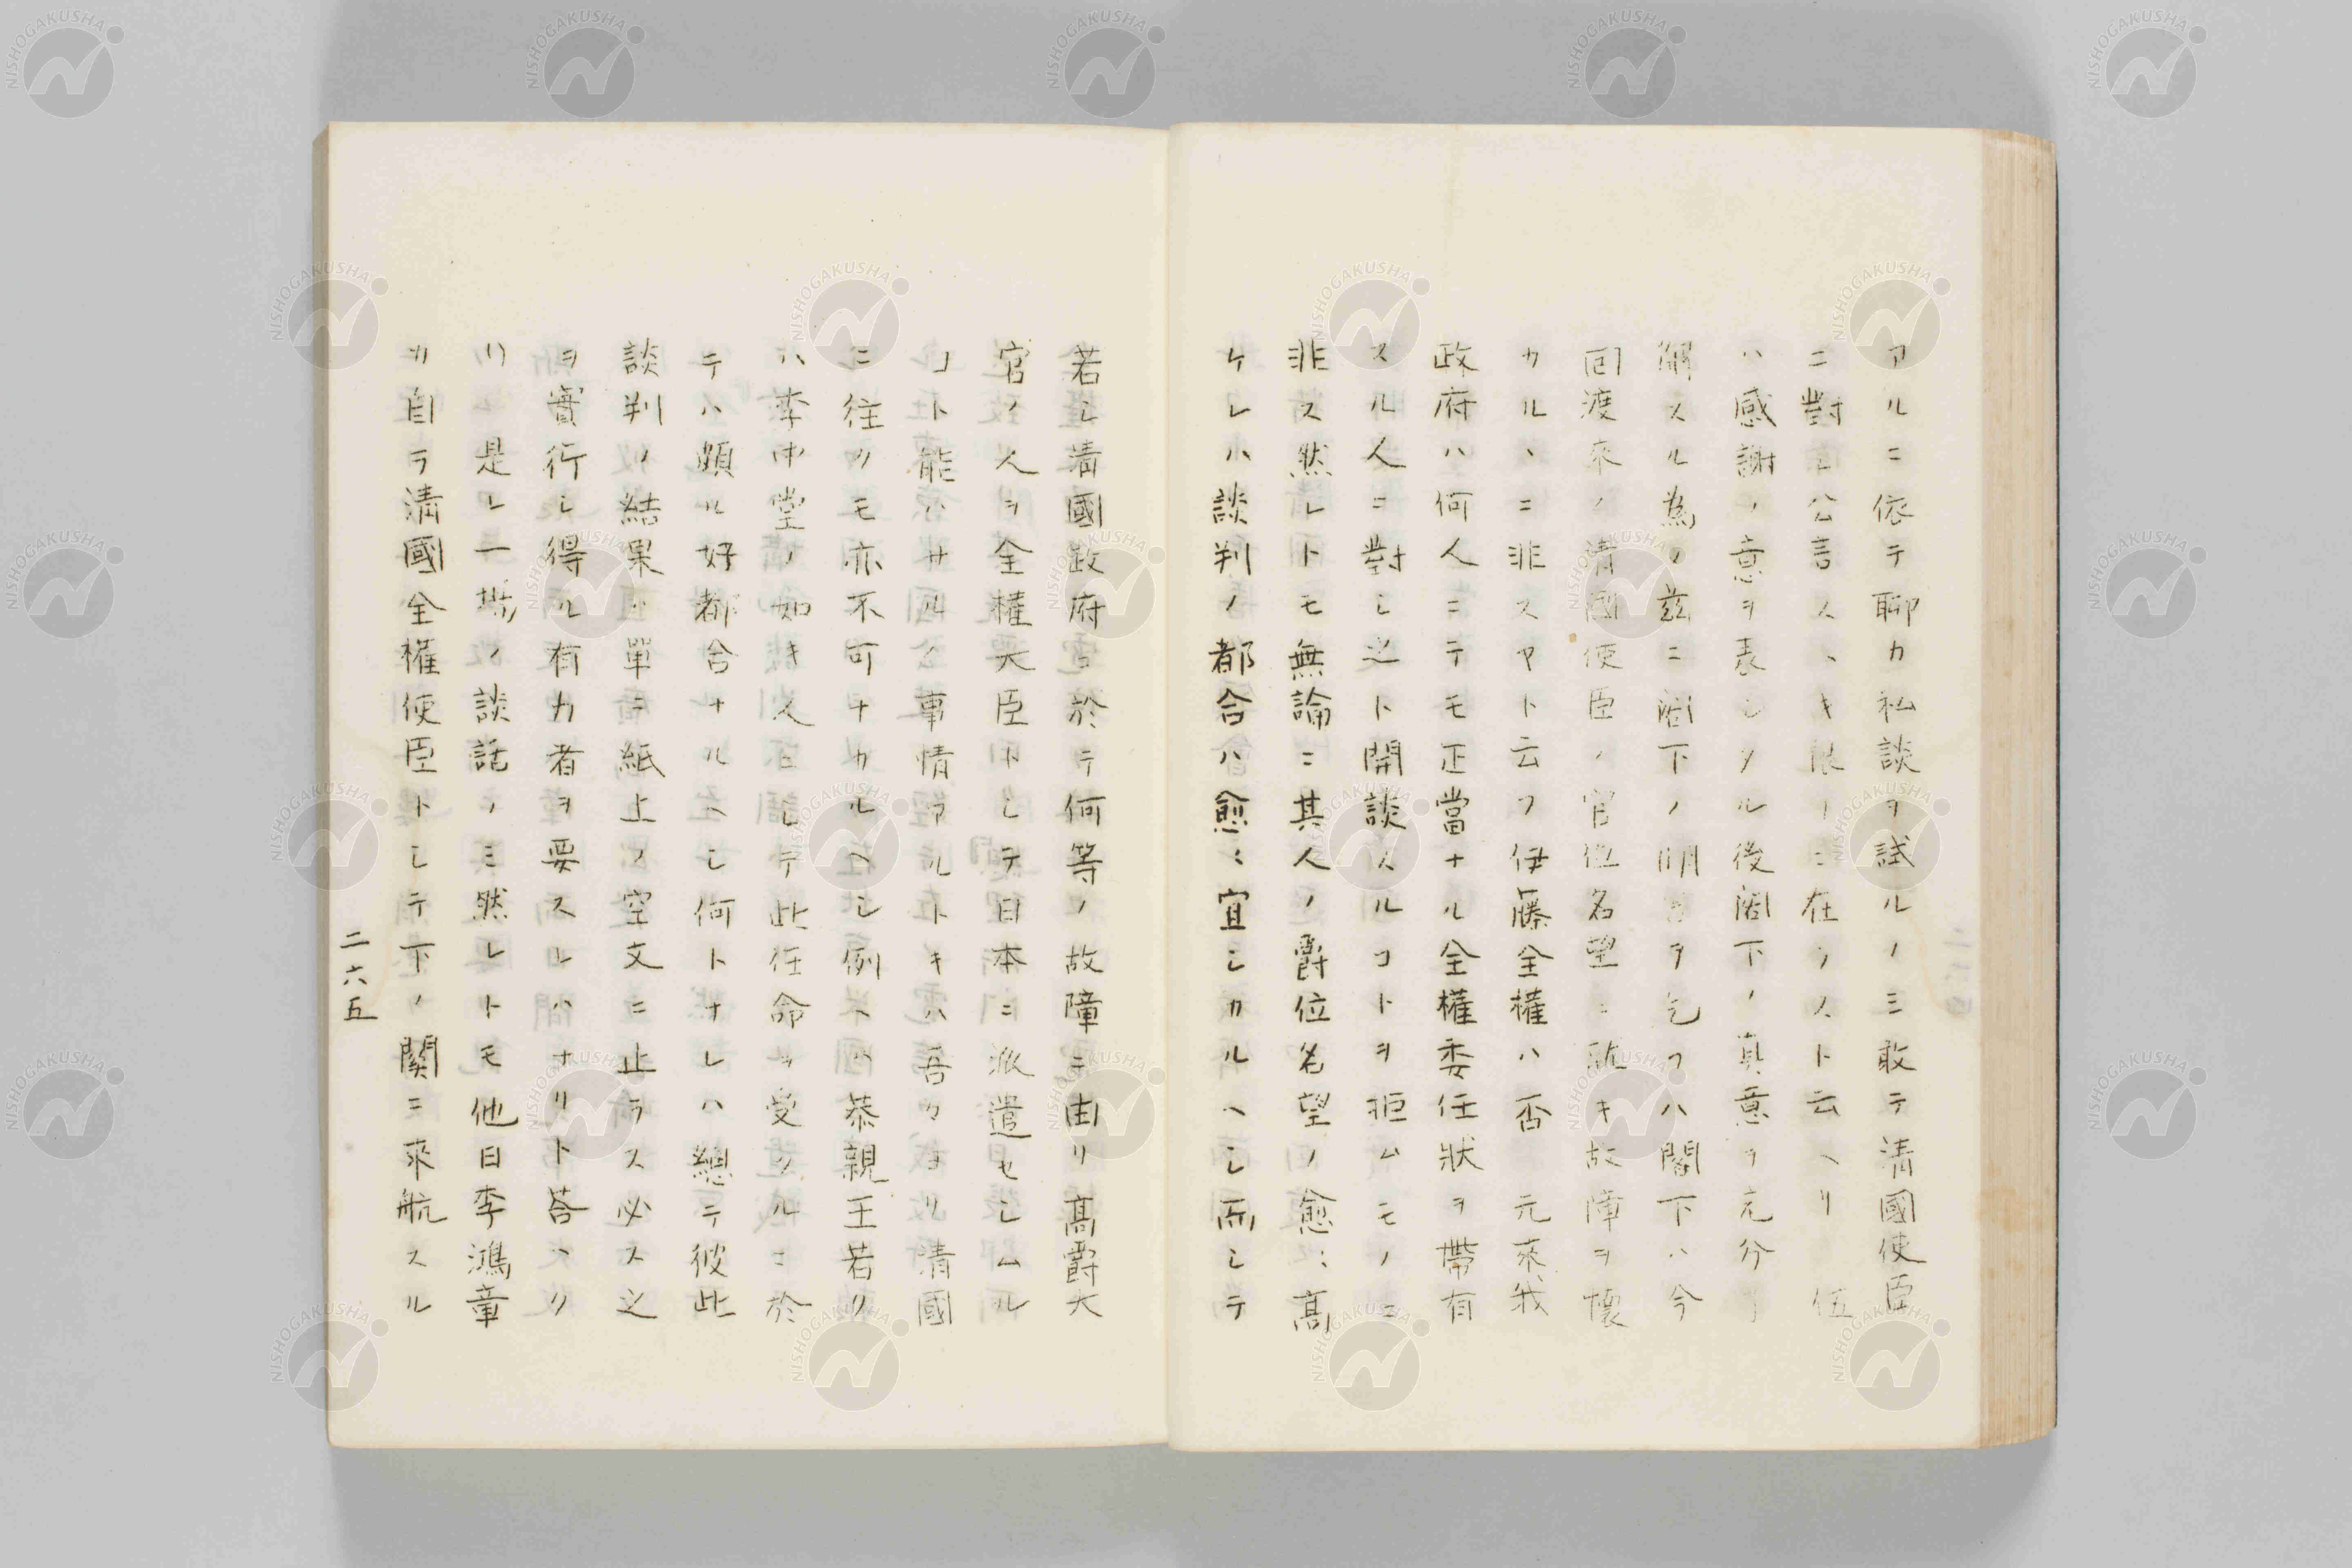 アルニ依テ聊カ私談ヲ試ルノミ敢テ清國使臣
ニ對シ公言スヘキ限リニ在ラスト云ヘリ 伍
ハ感謝ノ意ヲ表シタル後閣下ノ真意ヲ充分
解スル為メ茲ニ閣下ノ明言ヲ乞フハ閣下ハ今
回渡來ノ清國使臣ノ官位名望ニ就キ故障ヲ懐
カルヽニ非スヤト云フ伊藤全權ハ否 元來我
政府ハ何人ニテモ正當ナル全權委任狀ヲ帶有
スル人ニ對シ之ト開談スルコトヲ拒ムモノニ
非ス然レトモ無論ニ其人ノ爵位名望ノ愈〻高
ケレハ談判ノ都合ハ愈〻宜シカルヘシ而シテ
若シ清國政府ニ於テ何等ノ故障ニ由リ高爵大
官ノ人ヲ全權大臣トシテ日本ニ派遣セシムル
コト能ハサルノ事情アルトキハ吾カヨリ清國
ニ往クモ亦不可ナカルヘシ例ヘハ恭親王若クハ
李中堂ノ如キ人ニシテ此任命ヲ受クルニ於
テハ頗ル好都合ナルヘシ何トナレハ總テ彼此
談判ノ結果ハ單ニ紙上ノ空文ニ止ラス必ス之
ヲ實行シ得ル有力者ヲ要スレハナリト荅ヘタ
リ 是レ一塲ノ談話ノミ然レトモ他日李鴻章
カ自ラ清國全權使臣トシテ下ノ關ニ來航スル
二六五
NISHOGAKUSHA